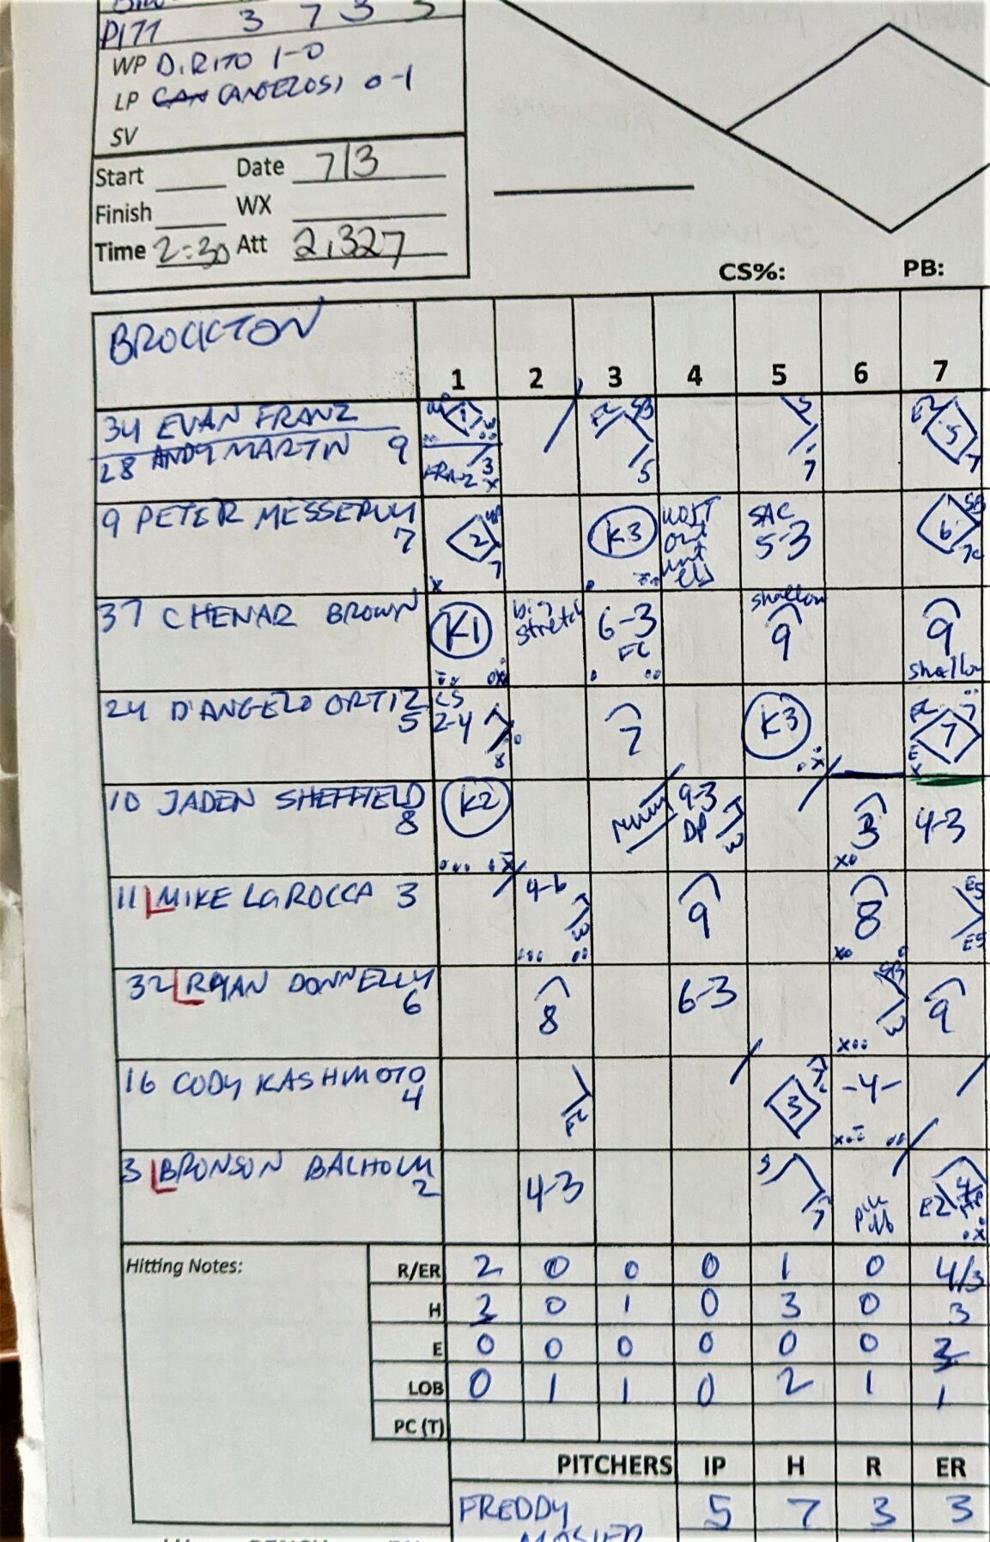 PITT 3 7 3 3
WP DIRITO 1-0
LP CAN CANGELOSI 0-1
SV
Start Date 7/3
Finish WX
Time 2:30 Att 2,327
CS%: PB:
BROCKTON 1 2 3 4 5 6 7
34 EVAN FRANZ
28 ANDY MARTIN 9
9 PETER MESSERVY 7
2 K3 SAC 5-3 6
37 CHENAR BROWN
K1 big stretch 6-3 FC shallow 9 9 shallow
24 D'ANGELO ORTIZ 5
CS 2-4 8 7 K3 7
10 JADEN SHEFFIELD 8
K2 9-3 DP 3 4-3
11 L MIKE LAROCCA 3
4-6 9 8 E5 E5
32 L RYAN DONNELLY 6
8 6-3 SB W 9
16 CODY KASHIMOTO 4
FC 3 -4-
3 L BRONSON BALHOLM 2
4-3 S 7 E2
Hitting Notes:
R/ER 2 0 0 0 1 0 4/3
H 2 0 1 0 3 0 3
E 0 0 0 0 0 0
LOB 0 1 1 0 2 1 1
PC (T)
PITCHERS IP H R ER
FREDDY 5 7 3 3